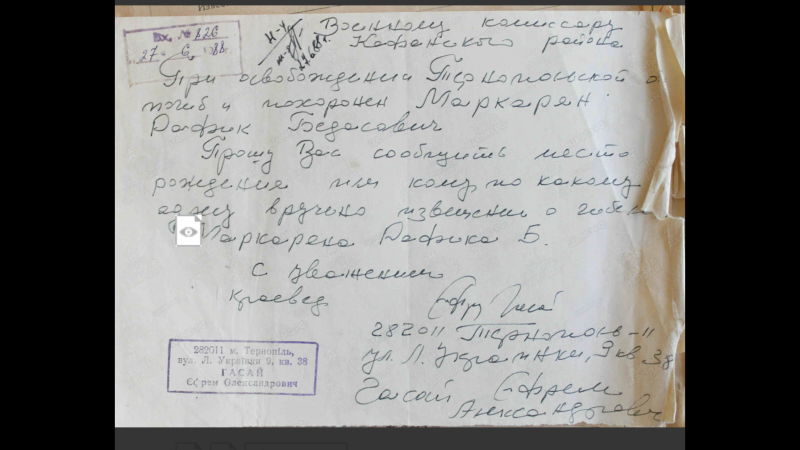 Вх. № 826
27 6 88
Военному комиссару
Кафанского района
При освобождении Тернопольской о
погиб и похоронен Маркарян
Рафик Бедасович
Прошу Вас сообщить место
рождения или кому, по какому
вручено извещении о гибел
Маркаряна Рафика Б.
С уважением
краевед
282011 Тернополь-11
ул. Л. Украинки, 9 кв. 38
Гасай Ефрем
Александрович
282011 м. Тернопіль,
вул. Л. Українки 9, кв. 38
ГАСАЙ
Єфрем Олександрович